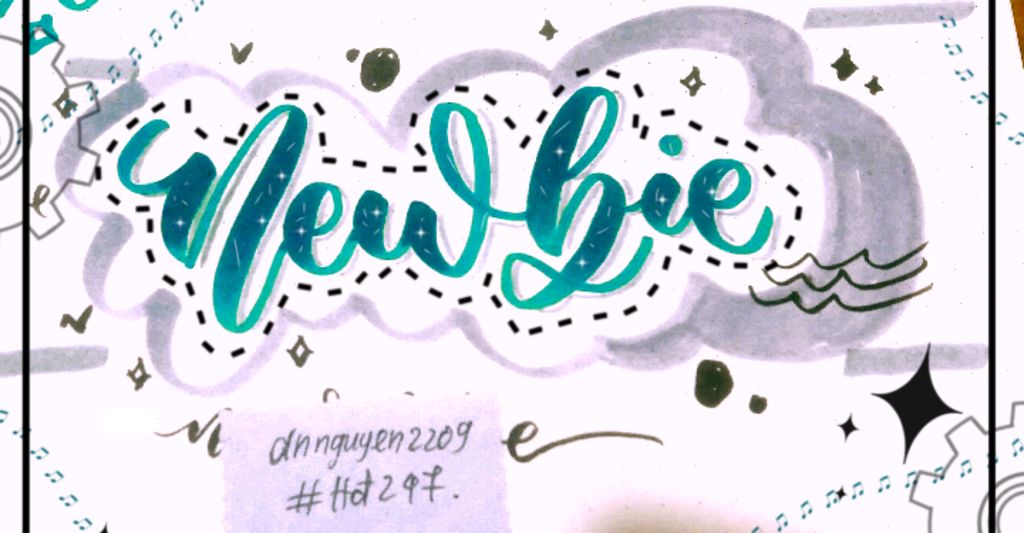 Newbie
dnnguyen2209
#Hot247.